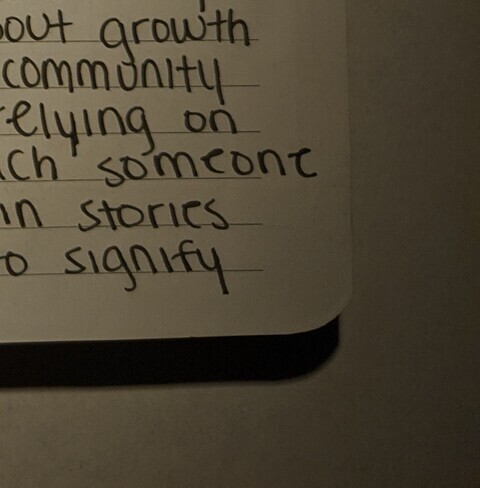 bout growth
community
relying on
ich someone
in stories
to signify